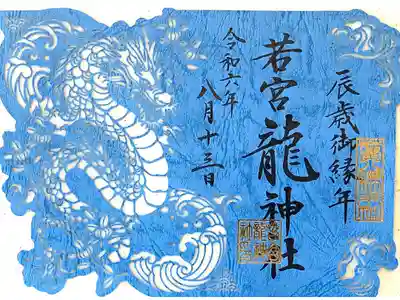 辰歳御縁年
若宮龍神社
令和六年
八月十三日